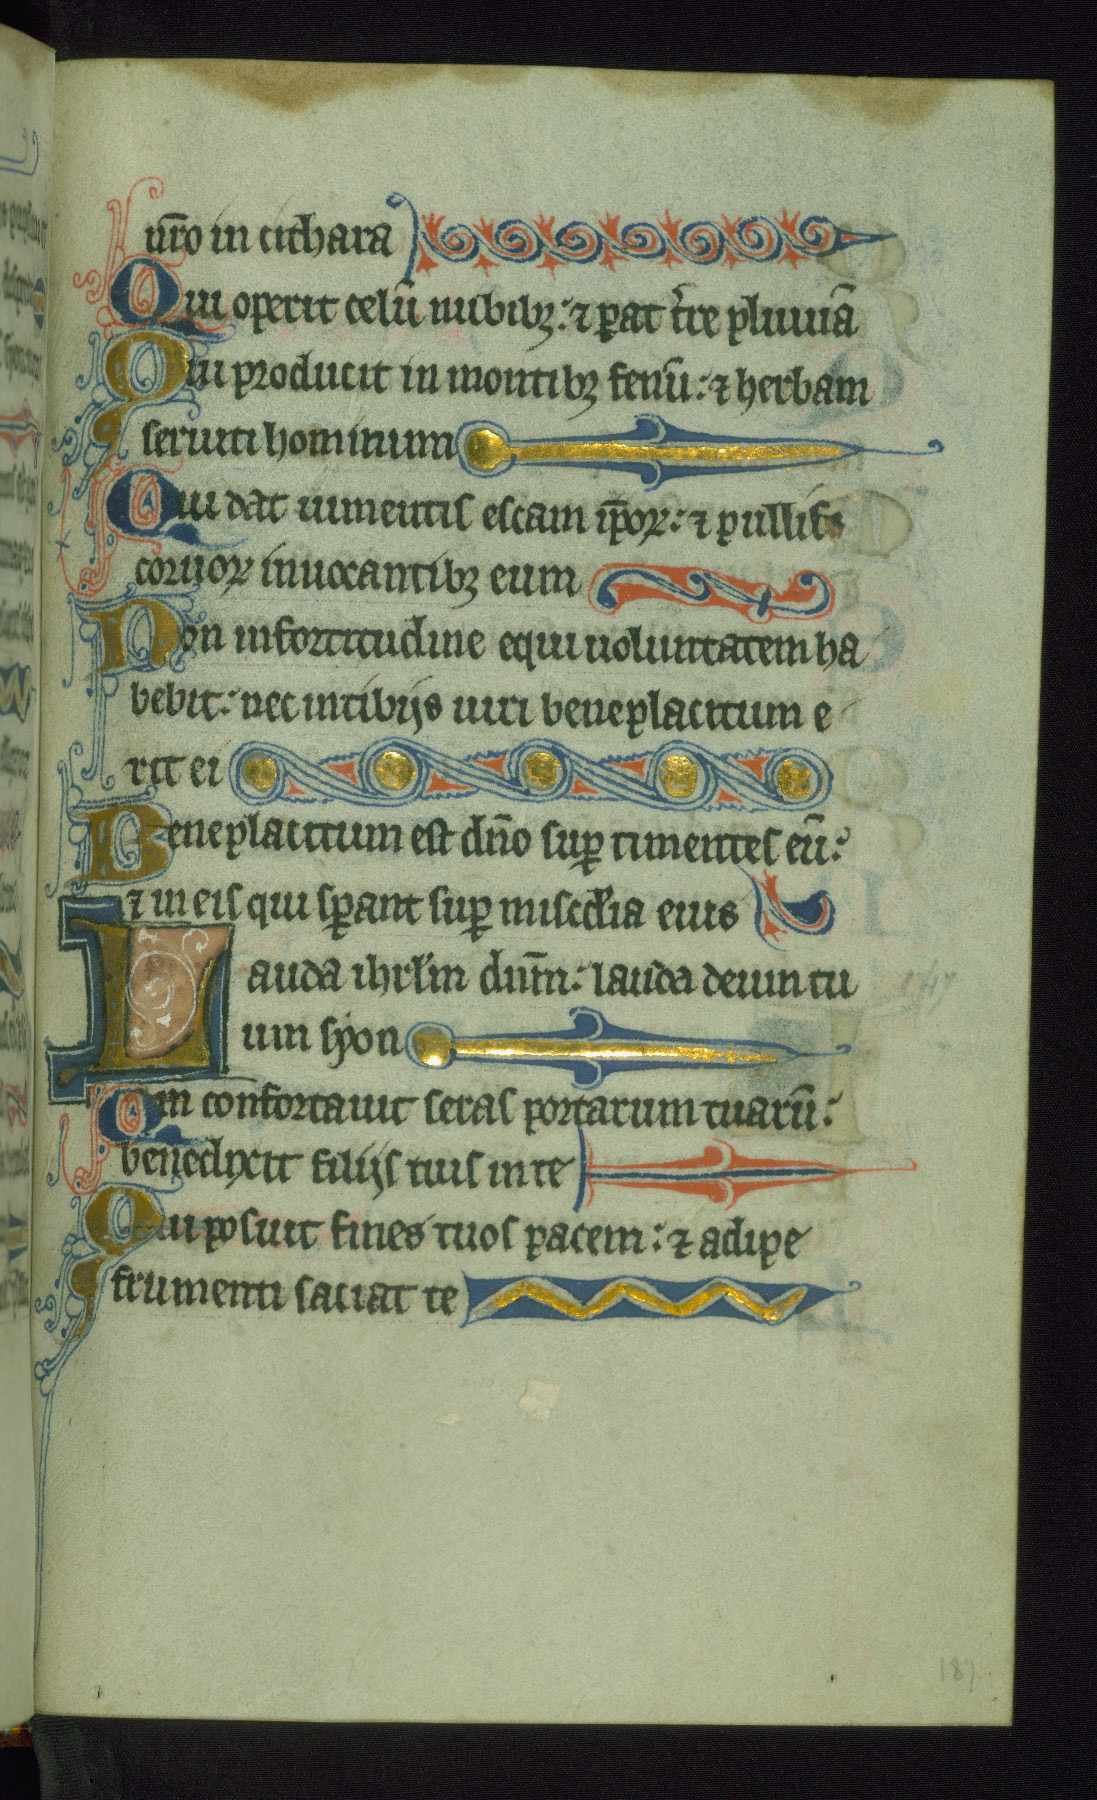 nr̄o in cithara
Qui operit celū nubibꝫ: ⁊ ꝑat t̄re pluuiā
Qui producit in montibꝫ fenū: ⁊ herbam
seruiti hominum
Qui dat iumentis escam ip̄oꝝ: ⁊ pullis
coruoꝝ inuocantibꝫ eum
Non infortitudine equi uoluntatem ha
bebit: nec intibijs uiri beneplacitum e
rit ei
Beneplacitum est dn̄o suꝑ timentes eū:
⁊ in eis qui sꝑant suꝑ misc̄dia eius
Lauda ihrl̄m dn̄m: lauda deum tu
um syon
Qm̄ confortauit seras portarum tuarū:
benedixit filijs tuis in te
Qui posuit fines tuos pacem: ⁊ adipe
frumenti saciat te
147
187